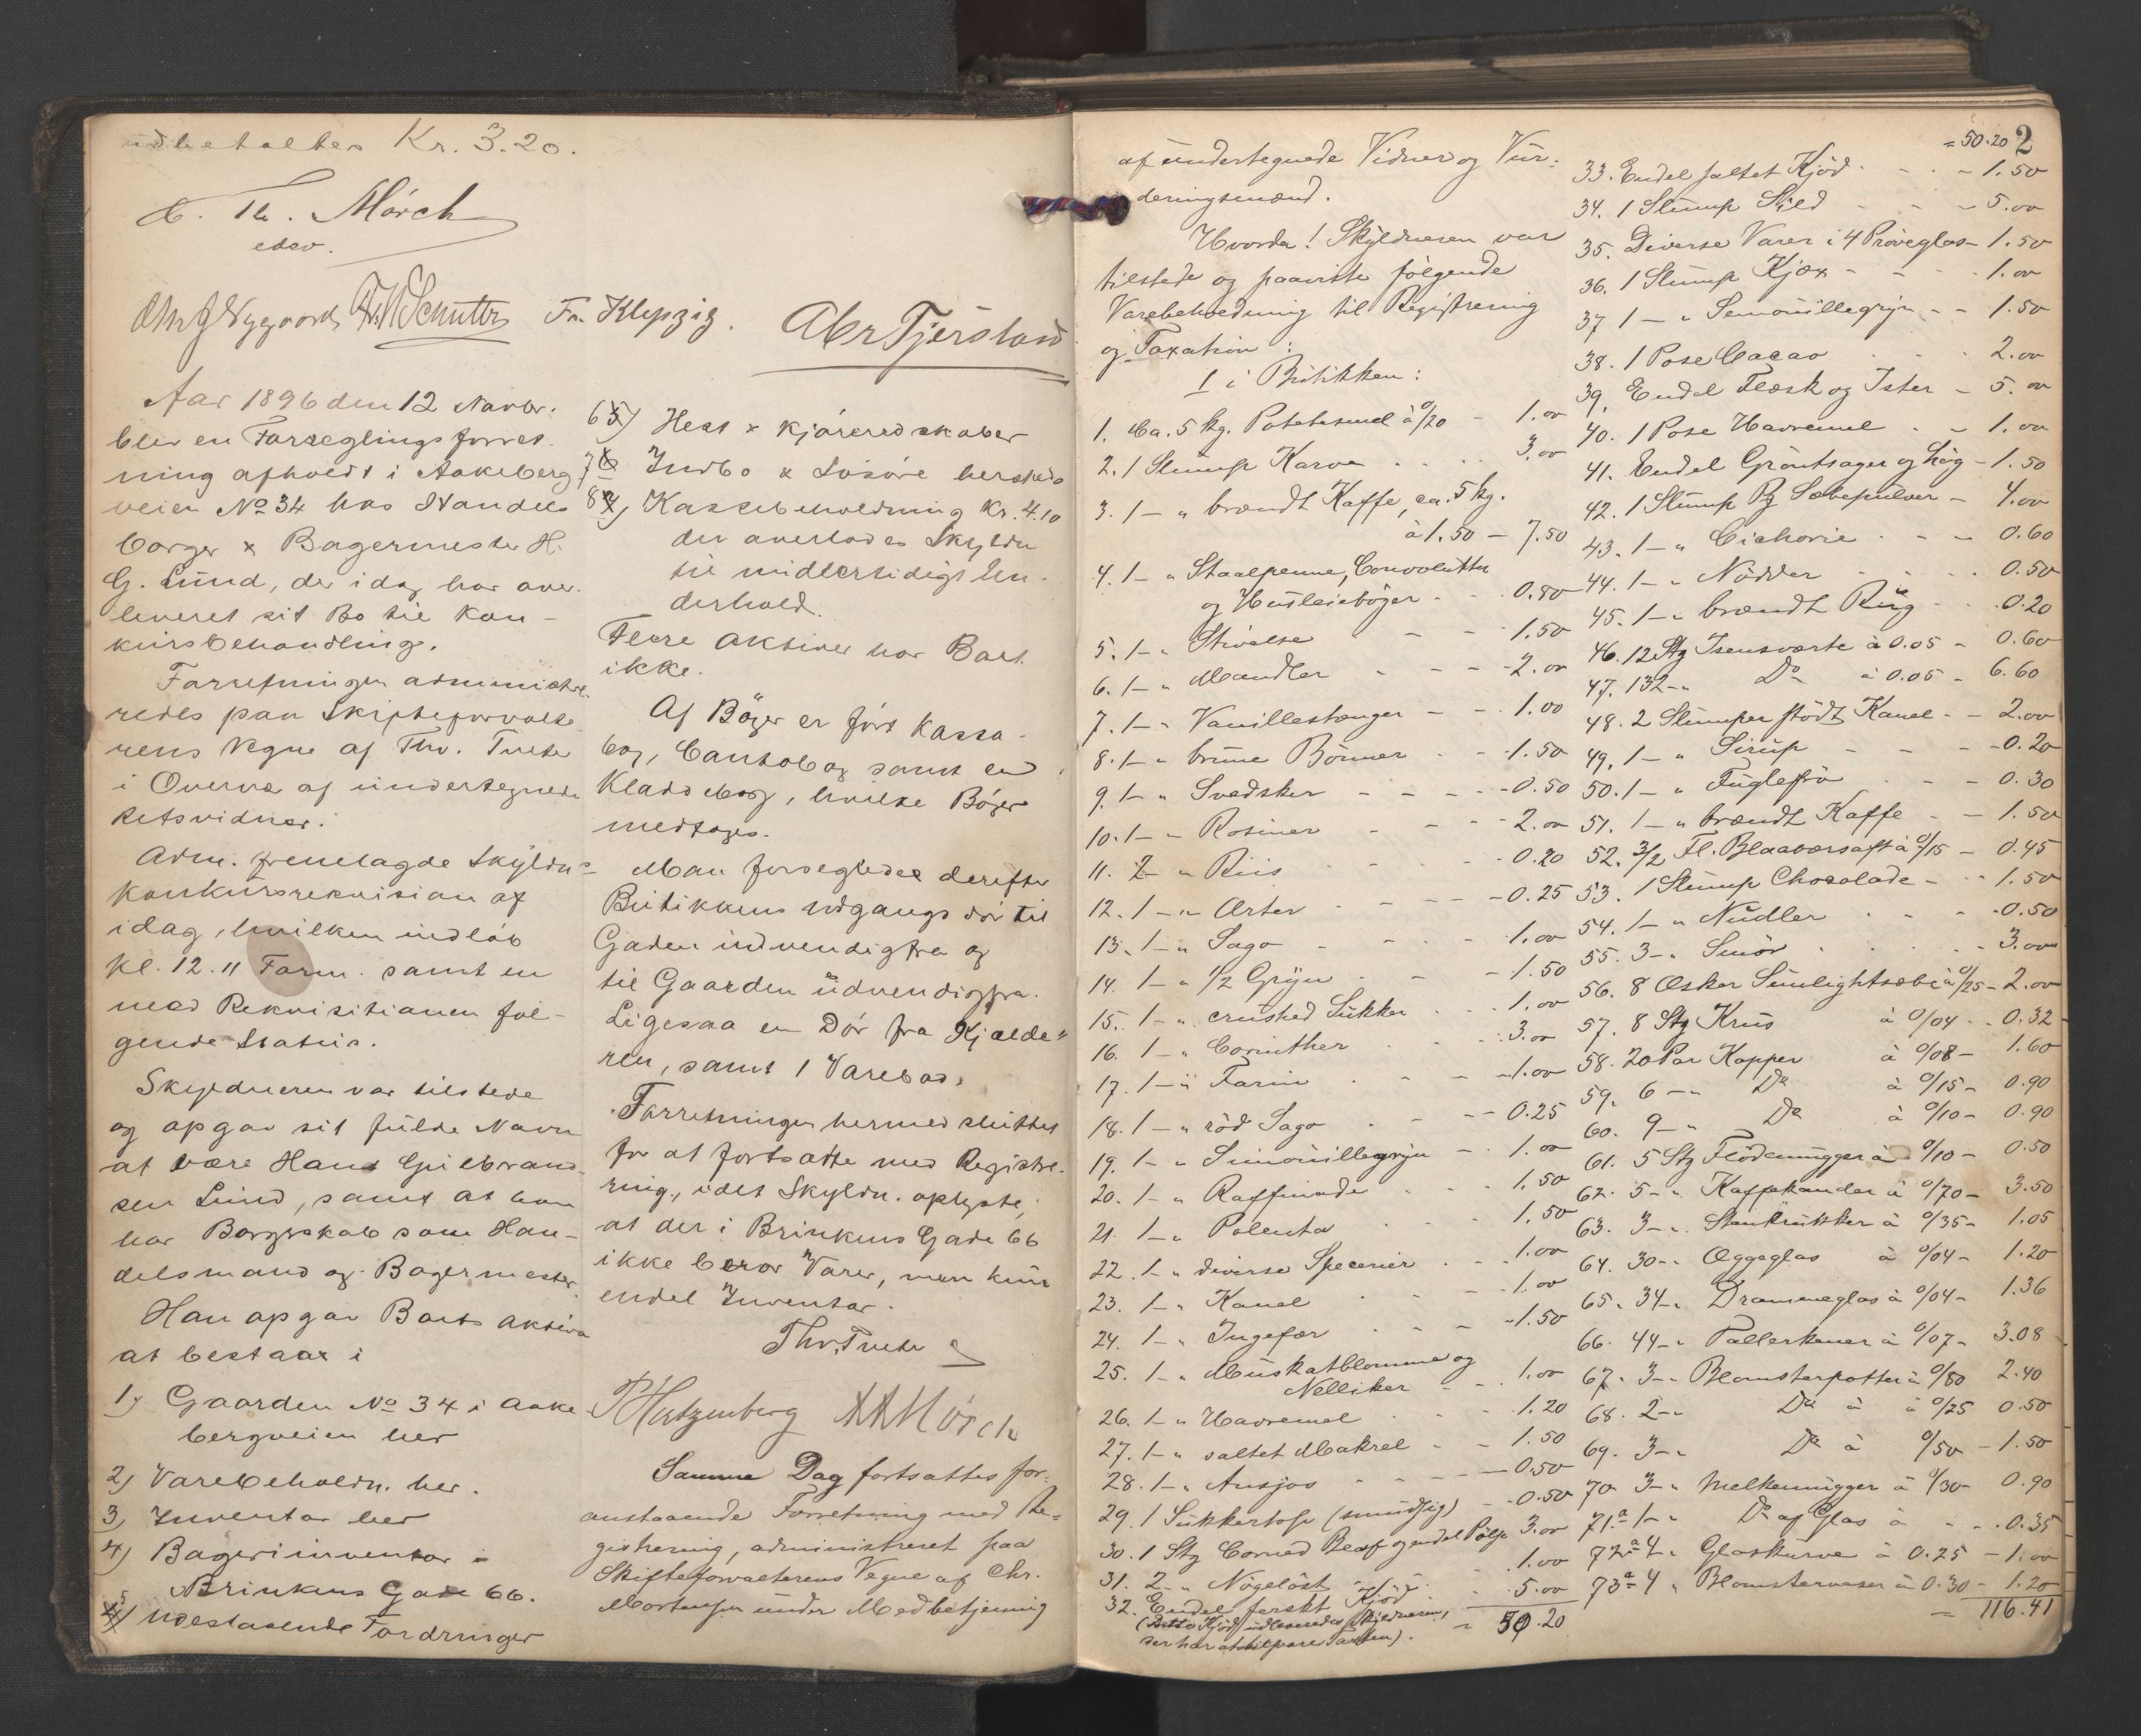 udbetaltes Kr. 3.20.
C. Th. Mörch
edsv.
Chr J Nygaard Fr. Klepzig. Abr Tjersland
Aar 1896 den 12 Novbr.
blev en Forseglingsforret
ning afholdt i Aakeberg
veien No 34 hos Handels
borger & Bagermester H.
G. Lund, der idag har over
leveret sit Bo til Kon-
kursbehandling.
Forretningen administre
redes paa Skifteforvalte
rens Vegne af Thv. Tveter
i Overvær af undertegnede
Retsvidner.
Adm. fremlagde Skyldns
Konkursrekvisition af
idag, hvilken indløb
Kl. 12.11 Form. samt en
med Rekvisitionen føl-
gende Status.
Skyldneren var tilstede
og opgav sit fulde Navn
at være Hans Gulbrand
sen Lund, samt at han
har Borgerskab som Han-
delsmand og Bagermester.
Han opgav Boets Aktiva
at bestaar i
1) Gaarden No 34 i Aake
bergveien her
2) Varebeholdn. her.
3) Inventar her
4) Bageriinventar i
Brinkens Gade 66.
5) Udestaaende Fordringer
6) Hest & Kjøreredskaber
7) Indbo & Løsøre hersteds
8) Kassebeholdning Kr. 4.10
der overlodes Skyldn
til midlertidigt Un-
derhold.
Flere Aktiver har Boet
ikke.
Af Bøger er ført Kassa-
bog, Contobog samt en
Kladdebog, hvilke Bøger
medtoges.
Man forseglede derefter
Butikkens Udgangsdør til
Gaden indvendigfra og
til Gaarden udvendigfra.
Ligesaa en Dør fra Kjælde"
ren, samt 1 Varebod.
Forretningen hermed sluttet
for at fortsætte med Registre-
ring, idet Skyldn. oplyste,
at der i Brinkens Gade 66
ikke beror Varer, men kun
endel Inventar.
Thv. Tveter
P Hertzenberg A A Mörch
Samme Dag fortsattes for-
anstaaende Forretning med Re-
gistrering, administreret paa
Skifteforvalterens Vegne af Chr.
Mortensen under Medbetjening
2
af undertegnede Vidner og Vur-
deringsmænd.
Hvorda! Skyldneren var
tilstede og paaviste følgende
Varebeholdning til Registrering
og Taxation:
I i Butikken:
1. Ca. 5 kg. Potetesmel à 0/20 - 1.00
2. 1 Slump Karve 3.00
3. 1 - " brændt Kaffe, ca. 5 kg.
à 1.50 - 7.50
4. 1 - " Staalpenne, Convolutter
og Husleiebøger 0.80
5. 1 - " Stivelse 1.50
6. 1 - " Mandler 2.00
7. 1 - " Vanillestænger 1.00
8. 1 - " brune Bønner 1.50
9. 1 - " Svedsker 0.50
10. 1 - " Rosiner 2.00
11. 2 - " Riis 0.20
12. 1 - " Erter 0.25
13. 1 - " Sago 1.00
14. 1 - " 1/2 Gryn 1.50
15. 1 - " crushed Sukker 1.00
16. 1 - " Corinther 3.00
17. 1 - " Farin 1.00
18. 1 - " rød Sago 0.25
19. 1 - " Simouillegryn 1.00
20. 1 - " Raffinade 1.50
21. 1 - " Polenta 1.50
22. 1 - " diverse Specerier 1.00
23. 1 - " Kanel 1.00
24. 1 - " Ingefær 1.50
25. 1 - " Muskatblomme og
Nelliker 1.00
26. 1 - " Havremel 1.20
27. 1 - " saltet Makrel 1.50
28. 1 - " Ansjos 0.50
29. 1 Sukkertop (smudsig) 0.50
30. 1 Stg Corned Beaf og endel Pølse 3.00
31. 2 - " Nøgelost 1.00
32. Endel ferskt Kjød 5.00
(Dette Kjød udleveredes Skyldneren,
50.20
= 50.20
33. Endel saltet Kjød 1.50
34. 1 Slump Sild 5.00
35. Diverse Varer i 4 Prøveglas 1.50
36. 1 Slump Kjæx 1.00
37 1 - " Semouillegryn 1.50
38. 1 Pose Cacao 2.00
39. Endel Flæsk og Ister 5.00
40. 1 Pose Havremel 1.00
41. Endel Grøntsager og Løg 1.50
42. 1 Slump Sæbepulver 4.00
43. 1 - " Cichorie 0.60
44. 1 - " Nødder 0.50
45. 1 - " brændt Rug 0.20
46. 12 Stg Isensværte à 0.05 - 0.60
47. 132 - " Do à 0.05 - 6.60
48. 2 Slumper stødt Kanel 2.00
49. 1 - " Sirup 0.20
50. 1 - " Fuglefrø 0.30
51. 1 - " brændt Kaffe 1.50
52. 3/2 Fl. Blaabærsaft à 0/15 - 0.45
53. 1 Slump Chocolade 1.50
54. 1 - " Nudler 0.50
55. 3 - " Smør 3.00
56. 8 Æsker Sunlightsæbe à 0/25 - 2.00
57. 8 Stg Krus à 0/04 0.32
58. 20 Par Kopper à 0/08 - 1.60
59. 6 - " Do à 0/15 - 0.90
60. 9 - " Do à 0/10 - 0.90
61. 5 Stg Flødemugger à 0/10 - 0.50
62. 5 - " Kaffekander à 0/70 - 3.50
63. 3 - " Stenkrukker à 0/35 - 1.05
64. 30 - " Æggeglas à 0/04 - 1.20
65. 34 - " Drammeglas à 0/04 - 1.36
66. 44 - " Tallerkener à 0/07 - 3.08
67. 3 - " Blomsterpotter à 0/80 2.40
68. 2 - " Do à à 0/25 0.50
69. 3 - " Do à 0/50 - 1.50
70 3 - " Melkemugger à 0/30 - 0.90
71a 1 - " Do af Glas à 0.35
72a 4 " Glaskurve à 0.25 - 1.00
73a 4 " Blomstervaser à 0.30 - 1.20
= 116.41